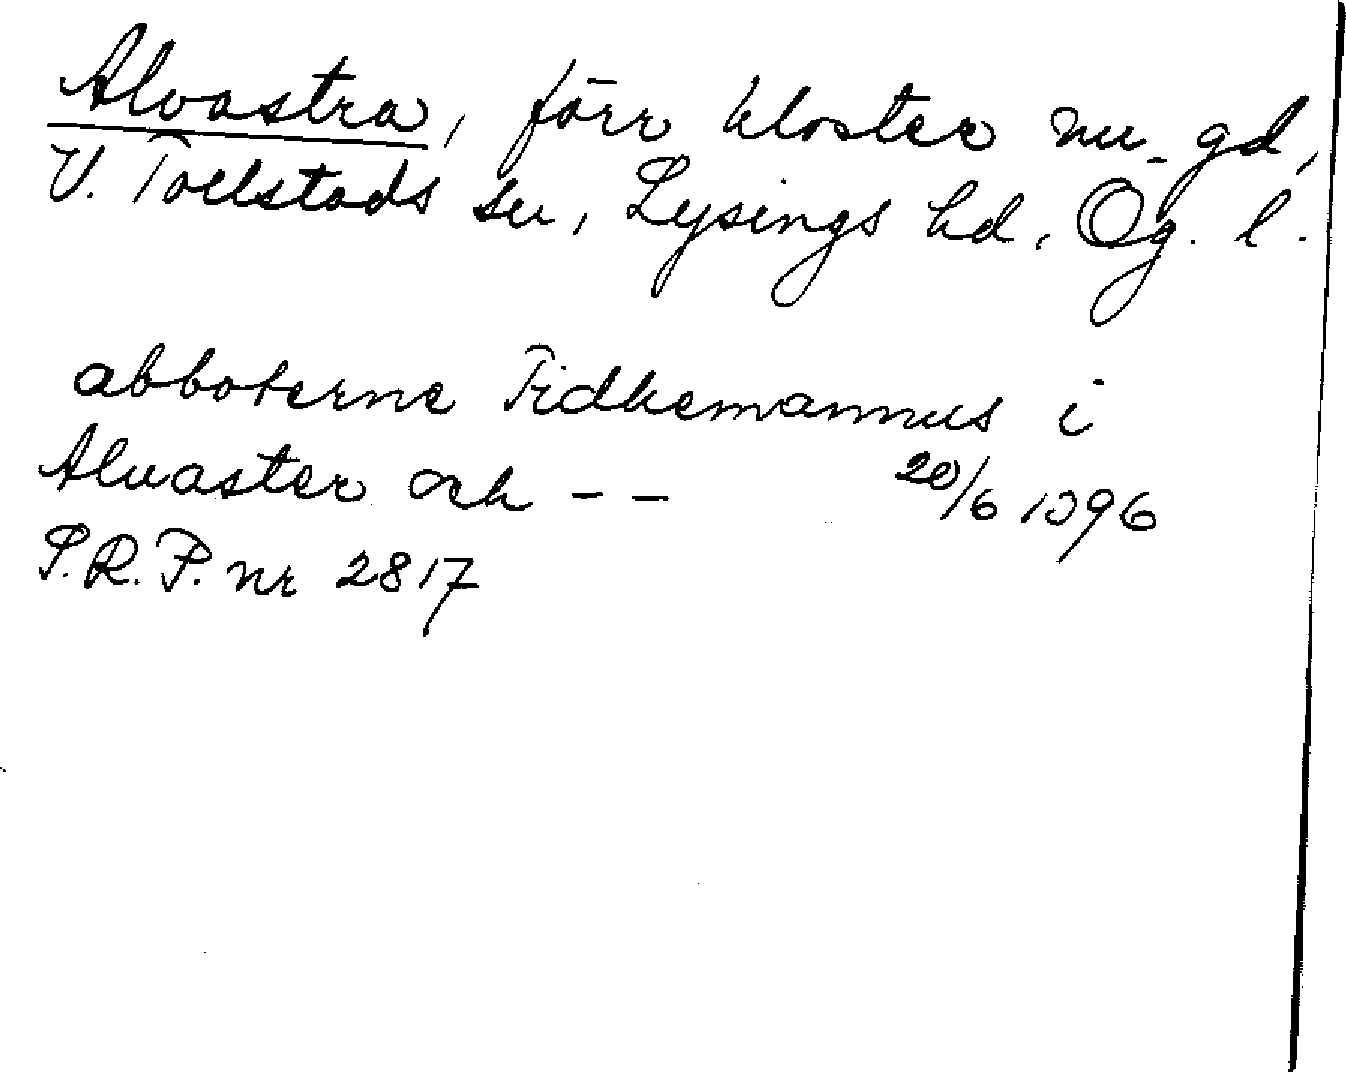 Alvastra, förr kloster nu gd,
V. Tollstads sn, Lysings hd, Ög. l.
abboterne Tidhemannus i
Alvaster och - - 20/6 1396
S.R.P. nr 2817